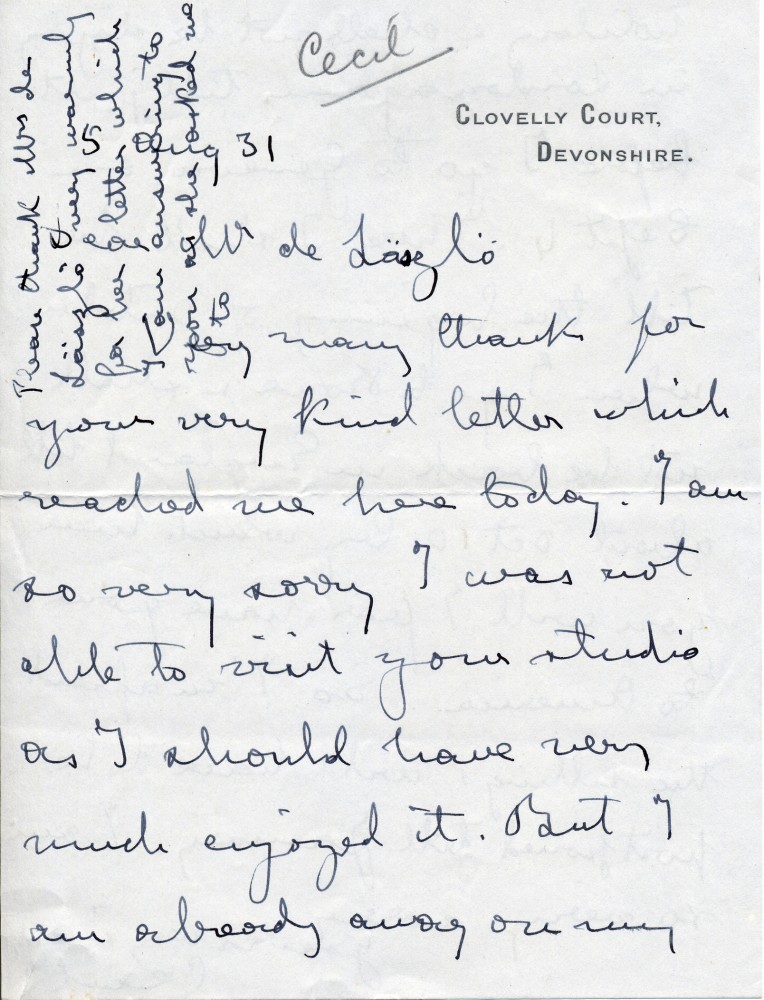 Cecil
CLOVELLY COURT,
DEVONSHIRE.
5 Aug 31
Mr de László
Very many thank for
your very kind letter which
reached me here today. I am
so very sorry I was not
able to visit your studio
as I should have very
much enjoyed it. But I
am already away on my
Please thank Mrs de
László very warmly
for her letter which
I am answering to
you as she asked me
to